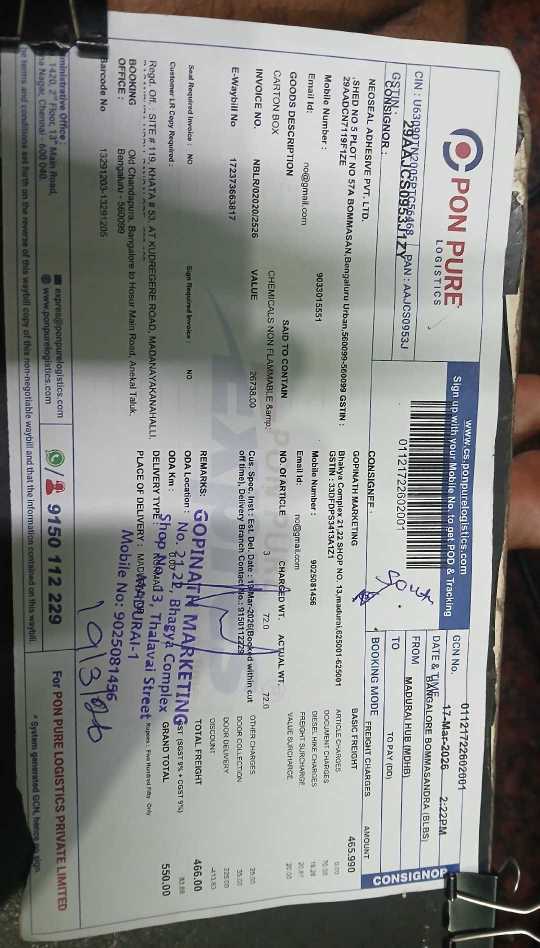 PON PURE
LOGISTICS
www.cs.ponpurelogistics.com
Sign up with your Mobile No. to get POD & Tracking
CIN : U63090TN2005PTC056468 PAN : AAJCS0953J
GSTIN : 29AAJCS0953J1ZY
01121722602001
GCN No. 01121722602001
DATE & TIME 17-Mar-2026 2:22PM
FROM BANGALORE BOMMASANDRA (BLBS)
TO MADURAI HUB (MDHB)
BOOKING MODE TO PAY (DD)
CONSIGNOR
CONSIGNOR :
NEOSEAL ADHESIVE PVT. LTD.
,SHED NO 5 PLOT NO 57A BOMMASAN,Bengaluru Urban,560099-560099 GSTIN :
29AADCN7119F1ZE
Mobile Number : 9033015551
Email Id: no@gmail.com
CONSIGNEE :
GOPINATH MARKETING
Bhakya Complex 21,22 SHOP NO. 13,madurai,625001-625001
GSTIN : 33DFDPS3413A1Z1
Mobile Number : 9025081456
Email Id: no@gmail.com
GOODS DESCRIPTION SAID TO CONTAIN
CARTON BOX CHEMICALS NON FLAMMABLE &amp;
NO OF ARTICLE CHARGED WT. ACTUAL WT.
3 72.0 72.0
INVOICE NO. NBLR/02020/2526 VALUE 26738.00
E-Waybill No 172373663817
Seal Required Invoice : NO Sign Required Invoice : NO
Customer LR Copy Required :
Cus. Spec. Inst : Est. Del. Date : 19-Mar-2026(Booked within cut
off time), Delivery Branch Contact No. : 9150112229
REMARKS:
ODA Location :
ODA Km : 0.00
DELIVERY TYPE :
PLACE OF DELIVERY :
GOPINATH MARKETING
No. 21, 22, Bhagya Complex
Shop No. 13 Thalavai Street
MADURAI-1
Mobile No: 9025081456
FREIGHT CHARGES AMOUNT
BASIC FREIGHT 465.990
ARTICLE CHARGES 0.00
DOCUMENT CHARGES
DIESEL HIKE CHARGES
FREIGHT SURCHARGE
VALUE SURCHARGE 20.00
OTHER CHARGES 25.00
DOOR COLLECTION 35.00
DOOR DELIVERY 225.00
DISCOUNT
TOTAL FREIGHT 466.00
GST (SGST 9% + CGST 9%)
GRAND TOTAL 550.00
Rupees : Five Hundred Fifty Only
Regd. Off. : SITE # 119, KHATA # 53, AT KUDREGERE ROAD, MADANAYAKANAHALLI,
BOOKING OFFICE : Old Chandapura, Bangalore to Hosur Main Road, Anekal Taluk,
Bengaluru - 560099
Barcode No 13291203-13291205
ministrative Office
1420, 2nd Floor, 13th Main Road,
na Nagar, Chennai - 600 040.
express@ponpurelogistics.com
www.ponpurelogistics.com
9150 112 229
For PON PURE LOGISTICS PRIVATE LIMITED
he terms and conditions set forth on the reverse of this waybill copy of this non-negotiable waybill and that the information contained on this waybill.
* System generated GCN, hence no sign